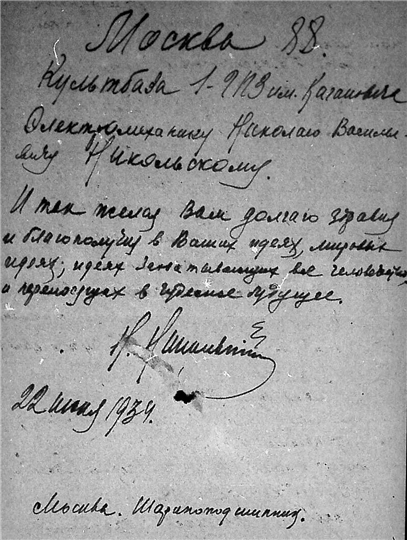 Москва 88.
Культбаза 1-ГПЗ им. Кагановича
Электромеханику Николаю Василье-
вичу Никольскому.
И так желая Вам долгаго здравия
и благополучия в Ваших идеях, мировых
идеях, идеях охватывающих все человечество,
и переносящих в чудесное будущее.
Н.
22 июня 1934.
Москва. Шарикоподшипник.